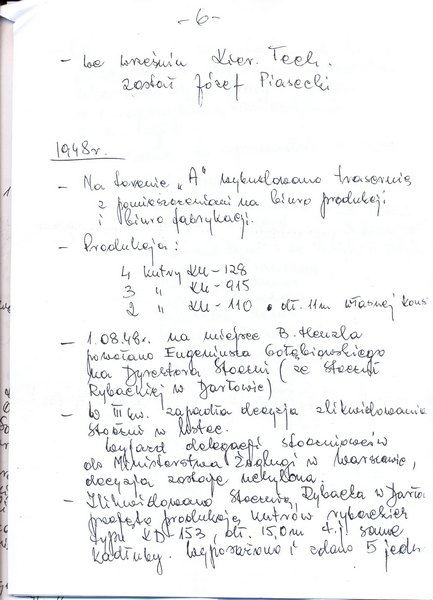 -6-
- we wrześniu Kier. Tech.
został Józef Piasecki
1948r.
- Na terenie "A" wybudowano trasernię
z pomieszczeniami na biuro produkcji
i biuro fabrykacji.
- Produkcja:
4 kutry KU-128
3 " KU-915
2 " KU-110 • dł. 11m własnej kons
- 1.08.48r. na miejsce B. Henzla
powołano Eugeniusza Gołębiowskiego
na Dyrektora Stoczni (ze Stoczni
Rybackiej w Darłowie)
- W III kw. zapadła decyzja zlikwidowania
Stoczni w Ustce.
Wyjazd delegacji stoczniowców
do Ministerstwa Żeglugi w Warszawie,
decyzja zostaje uchylona.
- Zlikwidowano Stocznię Rybacką w Darło
produkcję kutrów rybackich
typu KD-153, dł. 15,0m t.j. same
kadłuby. Wyposażono i zdano 5 jedn